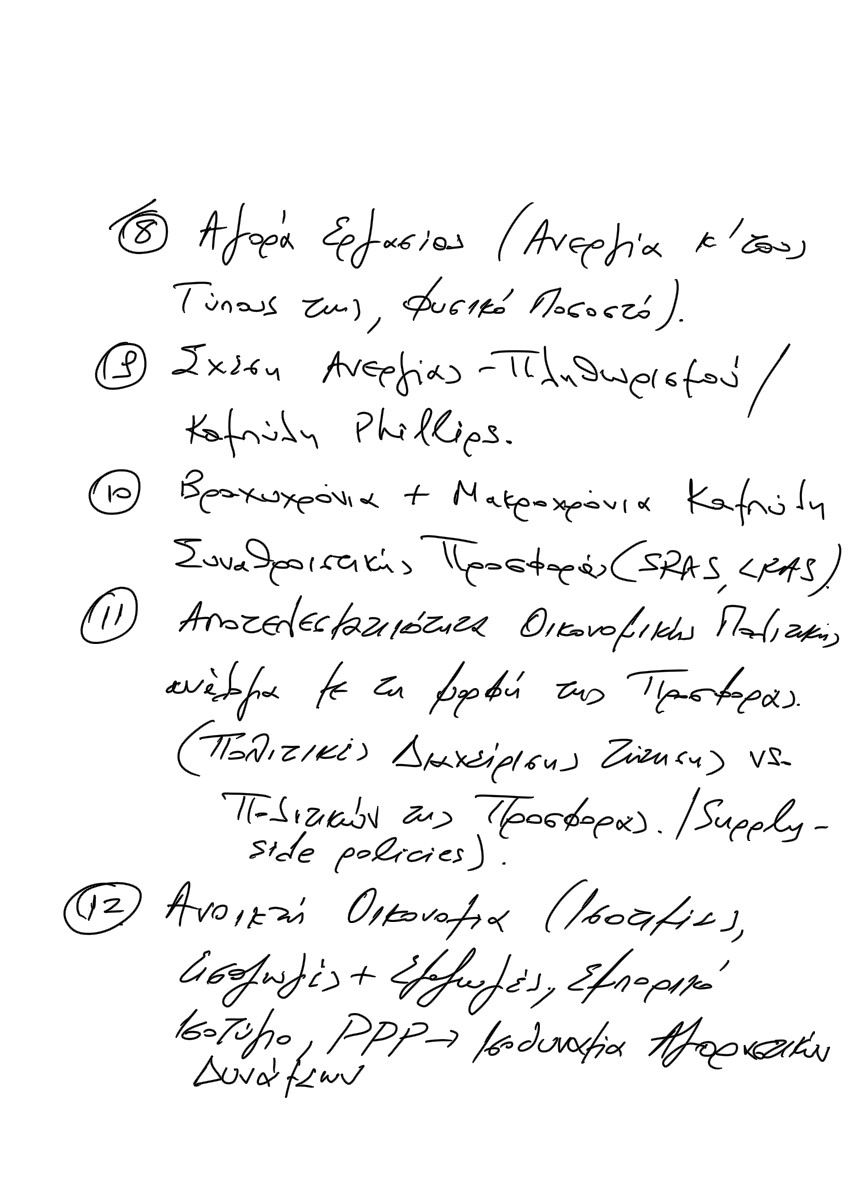 ⑧ Αγορά Εργασίας (Ανεργία κ' τους
Τύπους της, Φυσικό Ποσοστό).
⑨ Σχέση Ανεργίας - Πληθωρισμού /
Καμπύλη Phillips.
⑩ Βραχυχρόνια + Μακροχρόνια Καμπύλη
Συναθροιστικής Προσφοράς (SRAS, LRAS).
⑪ Αποτελεσματικότητα Οικονομικής Πολιτικής
ανάλογα με τη μορφή της Προσφοράς.
(Πολιτικές Διαχείρισης Ζήτησης vs
Πολιτικών της Προσφοράς. / Supply-
side policies).
⑫ Ανοικτή Οικονομία (Ισοτιμίες,
Εισαγωγές + Εξαγωγές, Εμπορικό
Ισοζύγιο, PPP → Ισοδυναμία Αγοραστικών
Δυνάμεων